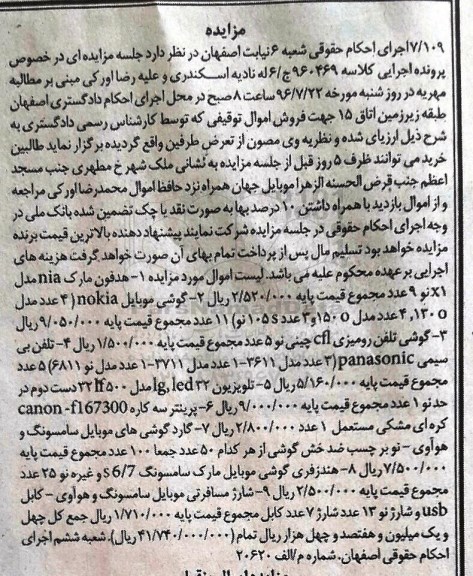 مزایده
۷/۱۰۹اجرای احکام حقوقی شعبه ۶نیابت اصفهان در نظر دارد جلسه مزایده ای در خصوص
پرونده اجرایی کلاسه ۹۶۰۴۶۹ج/۶ له نادیه اسکندری و علیه رضا اورکی مبنی بر مطالبه
مهریه در روز شنبه مورخه ۹۶/۷/۲۲ ساعت ۸ صبح در محل اجرای احکام دادگستری اصفهان
طبقه زیرزمین اتاق ۱۵ جهت فروش اموال توقیفی که توسط کارشناس رسمی دادگستری به
شرح ذیل ارزیابی شده و نظریه وی مصون از تعرض طرفین واقع گردیده برگزار نماید طالبین
خرید می توانند ظرف ۵ روز قبل از جلسه مزایده به نشانی ملک شهر خ مطهری جنب مسجد
اعظم جنب قرض الحسنه الزهرا موبایل جهان همراه نزد حافظ اموال محمدرضا اورکی مراجعه
و از اموال بازدید با همراه داشتن ۱۰ درصد بها به صورت نقد یا چک تضمین شده بانک ملی در
وجه اجرای احکام حقوقی در جلسه مزایده شرکت نمایند پیشنهاد دهنده بالاترین قیمت برنده
مزایده خواهد بود تسلیم مال پس از پرداخت تمام بهای آن صورت خواهد گرفت هزینه های
اجرایی بر عهده محکوم علیه می باشد. لیست اموال مورد مزایده ۱- هدفون مارک nia مدل
x۱ نو ۹ عدد مجموع قیمت پایه ۲/۵۲۰/۰۰۰ ریال ۲- گوشی موبایل nokia (۴ عدد مدل
۱۳۰ o, ۴ عدد مدل ۱۵۰ o و ۳ عدد ۱۰۵ s نو) ۱۱ عدد مجموع قیمت پایه ۹/۰۵۰/۰۰۰ ریال
۳- گوشی تلفن رومیزی cfl چینی نو ۵ عدد مجموع قیمت پایه ۱/۵۰۰/۰۰۰ ریال ۴- تلفن بی
سیمی panasonic (۳ عدد مدل ۳۶۱۱-۱ عدد مدل ۳۷۱۱-۱ عدد مدل نو ۶۸۱۱) ۵ عدد
مجموع قیمت پایه ۵/۱۶۰/۰۰۰ ریال ۵- تلویزیون lg,led ۳۲ مدل ۳۲lf۵۰۰ دست دوم در
حد نو ۱ عدد مجموع قیمت پایه ۹/۰۰۰/۰۰۰ ریال ۶- پرینتر سه کاره canon -f167300
کره ای مشکی مستعمل ۱ عدد ۲/۸۰۰/۰۰۰ ریال ۷- گارد گوشی های موبایل سامسونگ و
هوآوی - نو بر چسب ضد خش گوشی از هر کدام ۵۰ عدد جمعا ۱۰۰ عدد مجموع قیمت پایه
۷/۵۰۰/۰۰۰ ریال ۸- هندزفری گوشی موبایل مارک سامسونگ s 6/7 و غیره نو ۲۵ عدد
مجموع قیمت پایه ۲/۵۰۰/۰۰۰ ریال ۹- شارژ مسافرتی موبایل سامسونگ و هوآوی - کابل
usb و شارژ نو ۱۳ عدد شارژ ۷ عدد کابل مجموع قیمت پایه ۱/۷۱۰/۰۰۰ ریال جمع کل چهل
و یک میلیون و هفتصد و چهل هزار ریال تمام (۴۱/۷۴۰/۰۰۰/۰۰۰ ریال). شعبه ششم اجرای
احکام حقوقی اصفهان. شماره م/الف ۲۰۶۲۰